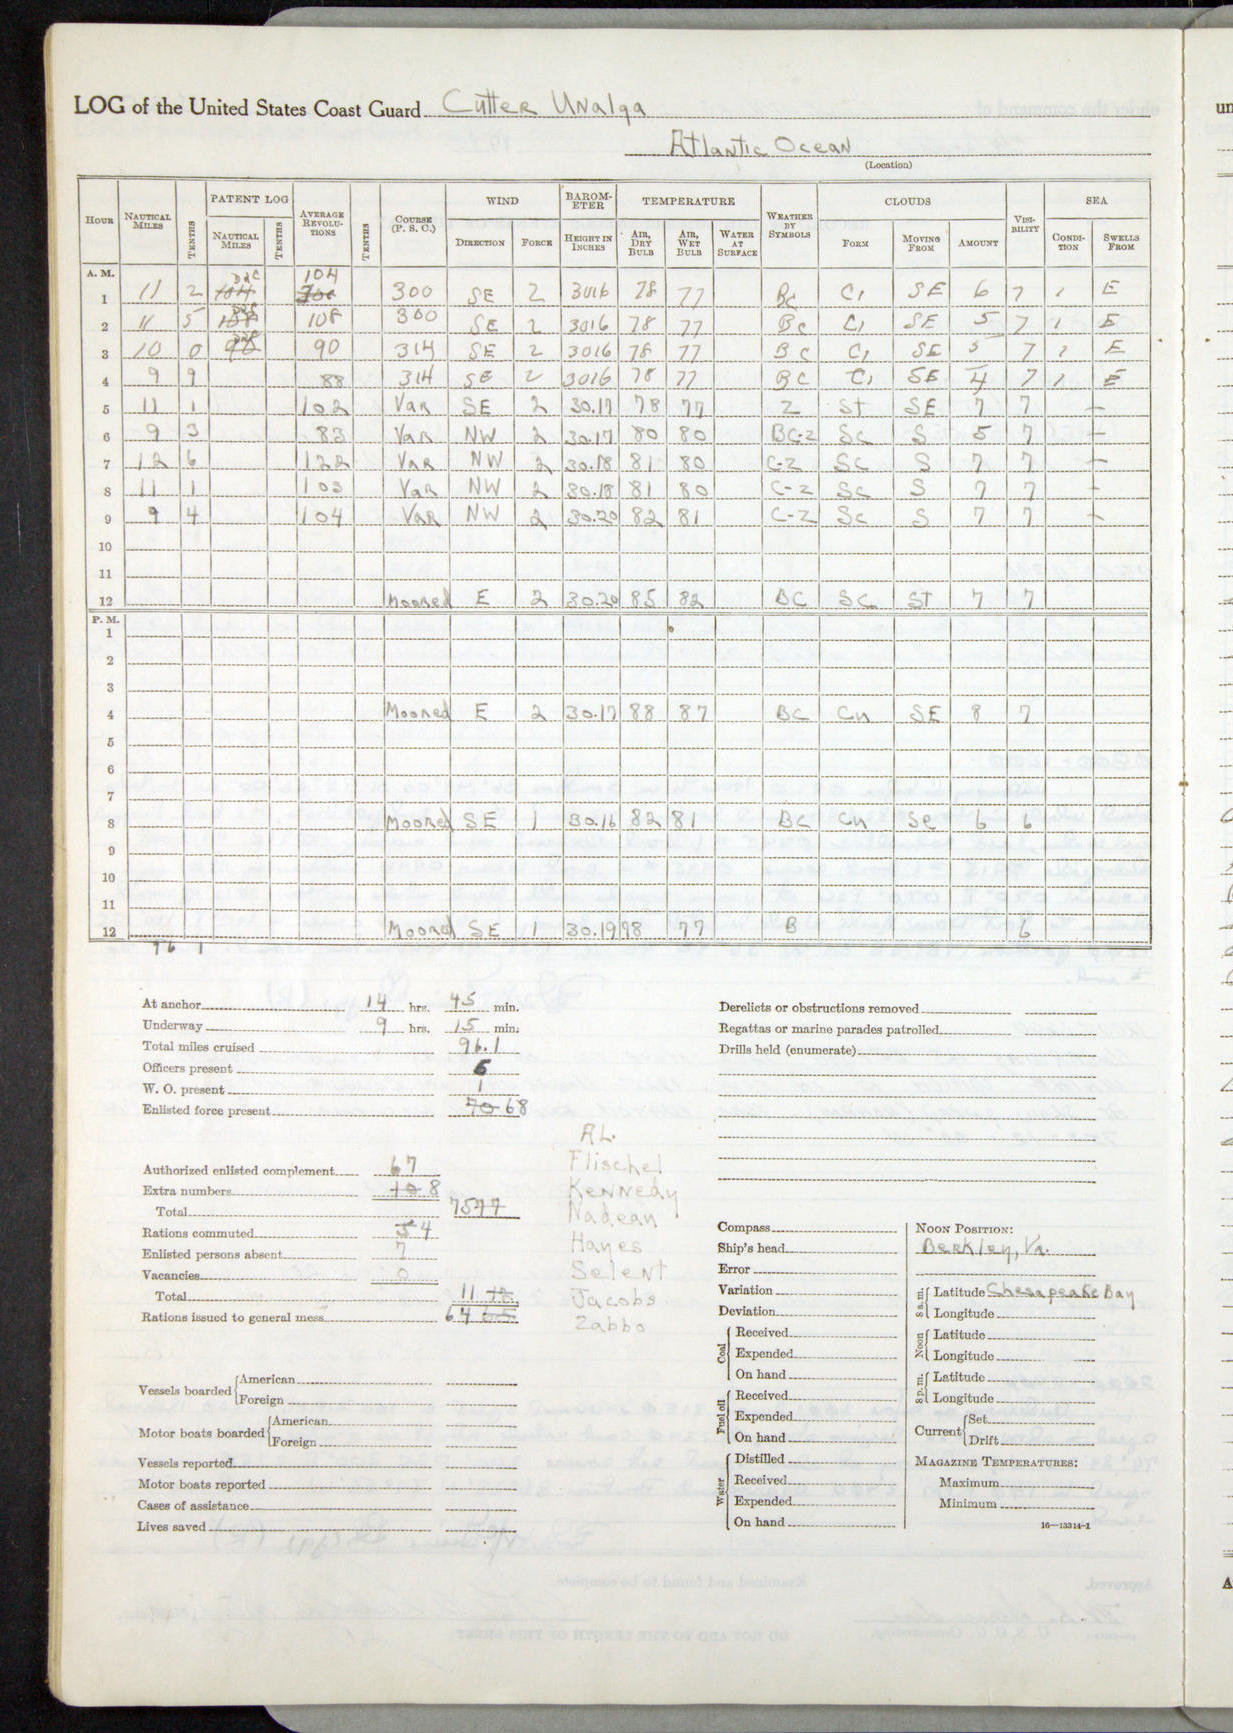 LOG of the United States Coast Guard Cutter Unalga
Atlantic Ocean
(Location)
HOUR NAUTICAL MILES TENTHS PATENT LOG NAUTICAL MILES TENTHS AVERAGE REVOLUTIONS TENTHS COURSE (P. S. C.) WIND DIRECTION FORCE BAROMETER HEIGHT IN INCHES TEMPERATURE AIR, DRY BULB AIR, WET BULB WATER AT SURFACE WEATHER BY SYMBOLS CLOUDS FORM MOVING FROM AMOUNT VISIBILITY SEA CONDITION SWELLS FROM
A. M.
1 11 2 104 104 300 SE 2 3016 78 77 Bc Ci SE 6 7 1 E
2 11 5 108 108 300 SE 2 3016 78 77 Bc Ci SE 5 7 1 E
3 10 0 90 90 314 SE 2 3016 78 77 BC Ci SE 5 7 1 E
4 9 9 88 314 SE 2 3016 78 77 BC Ci SE 4 7 1 E
5 11 1 102 Var SE 2 30.17 78 77 Z St SE 7 7 —
6 9 3 83 Var NW 2 30.17 80 80 BC-Z Sc S 5 7 —
7 12 6 122 Var NW 2 30.18 81 80 C-Z Sc S 7 7 —
8 11 1 103 Var NW 2 30.18 81 80 C-Z Sc S 7 7 —
9 9 4 104 Var NW 2 30.20 82 81 C-Z Sc S 7 7 —
10
11
12 Moored E 2 30.20 85 82 BC SC ST 7 7
P. M.
1
2
3
4 Moored E 2 30.17 88 87 BC Cu SE 8 7
5
6
7
8 Moored SE 1 30.16 82 81 BC Cu Se 6 6
9
10
11
12 Moored SE 1 30.19 78 77 B 6
96 1
At anchor 14 hrs. 45 min.
Underway 9 hrs. 15 min.
Total miles cruised 96.1
Officers present 6
W. O. present 1
Enlisted force present 70 68
Authorized enlisted complement 67
Extra numbers 10 8
Total 75 77
Rations commuted 5 4
Enlisted persons absent 7
Vacancies 0
Total 11 12
Rations issued to general mess 64 65
A.L.
Flischel
Kennedy
Nadean
Hayes
Selent
Jacobs
Zabbo
Vessels boarded American
Foreign
Motor boats boarded American
Foreign
Vessels reported
Motor boats reported
Cases of assistance
Lives saved
Derelicts or obstructions removed
Regattas or marine parades patrolled
Drills held (enumerate)
Compass
Ship's head
Error
Variation
Deviation
Coal Received
Expended
On hand
Fuel oil Received
Expended
On hand
Water Distilled
Received
Expended
On hand
NOON POSITION:
Berkley, Va.
8 a. m. Latitude Chesapeake Bay
Longitude
Noon Latitude
Longitude
8 p. m. Latitude
Longitude
Current Set
Drift
MAGAZINE TEMPERATURES:
Maximum
Minimum
16—13314-1
un
A